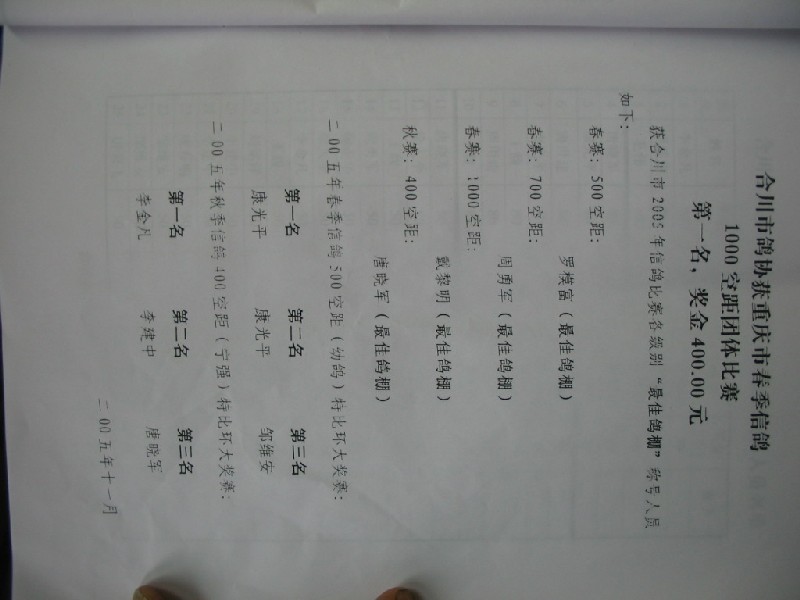 合川市鸽协获重庆市春季信鸽
1000 空距团体比赛
第一名，奖金 400.00 元
获合川市 2005 年信鸽比赛各级别“最佳鸽棚”称号人员
如下：
春赛：500 空距：
罗模富（最佳鸽棚）
春赛：700 空距：
周勇军（最佳鸽棚）
春赛：1000 空距：
戴黎明（最佳鸽棚）
秋赛：400 空距：
唐晓军（最佳鸽棚）
二 00 五年春季信鸽 500 空距（幼鸽）特比环大奖赛：
第一名 第二名 第三名
康光平 康光平 邹维安
二 00 五年秋季信鸽 400 空距（宁强）特比环大奖赛：
第一名 第二名 第三名
李全凡 李建中 唐晓军
二 00 五年十一月